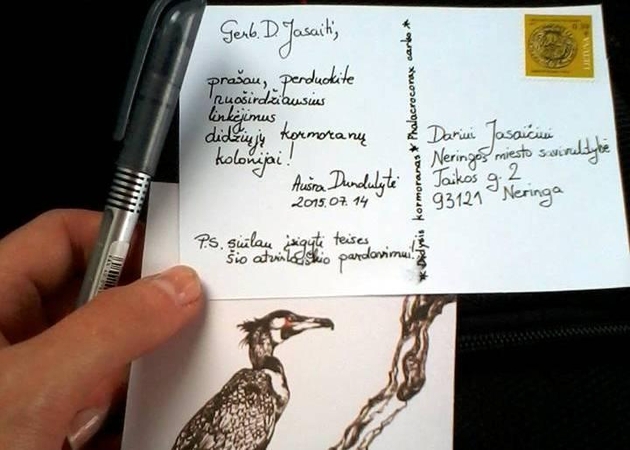 Gerb. D. Jasaiti,
prašau, perduokite
nuoširdžiausius
linkėjimus
didžiųjų kormoranų
kolonijai!
Aušra Dundulytė
2015.07.14
P.S. siūlau įsigyti teises
šio atvirlaiškio pardavimui!
* Didysis kormoranas * Phalacrocorax carbo *
Dariui Jasaičiui
Neringos miesto savivaldybė
Taikos g. 2
93121 Neringa
LIETUVA